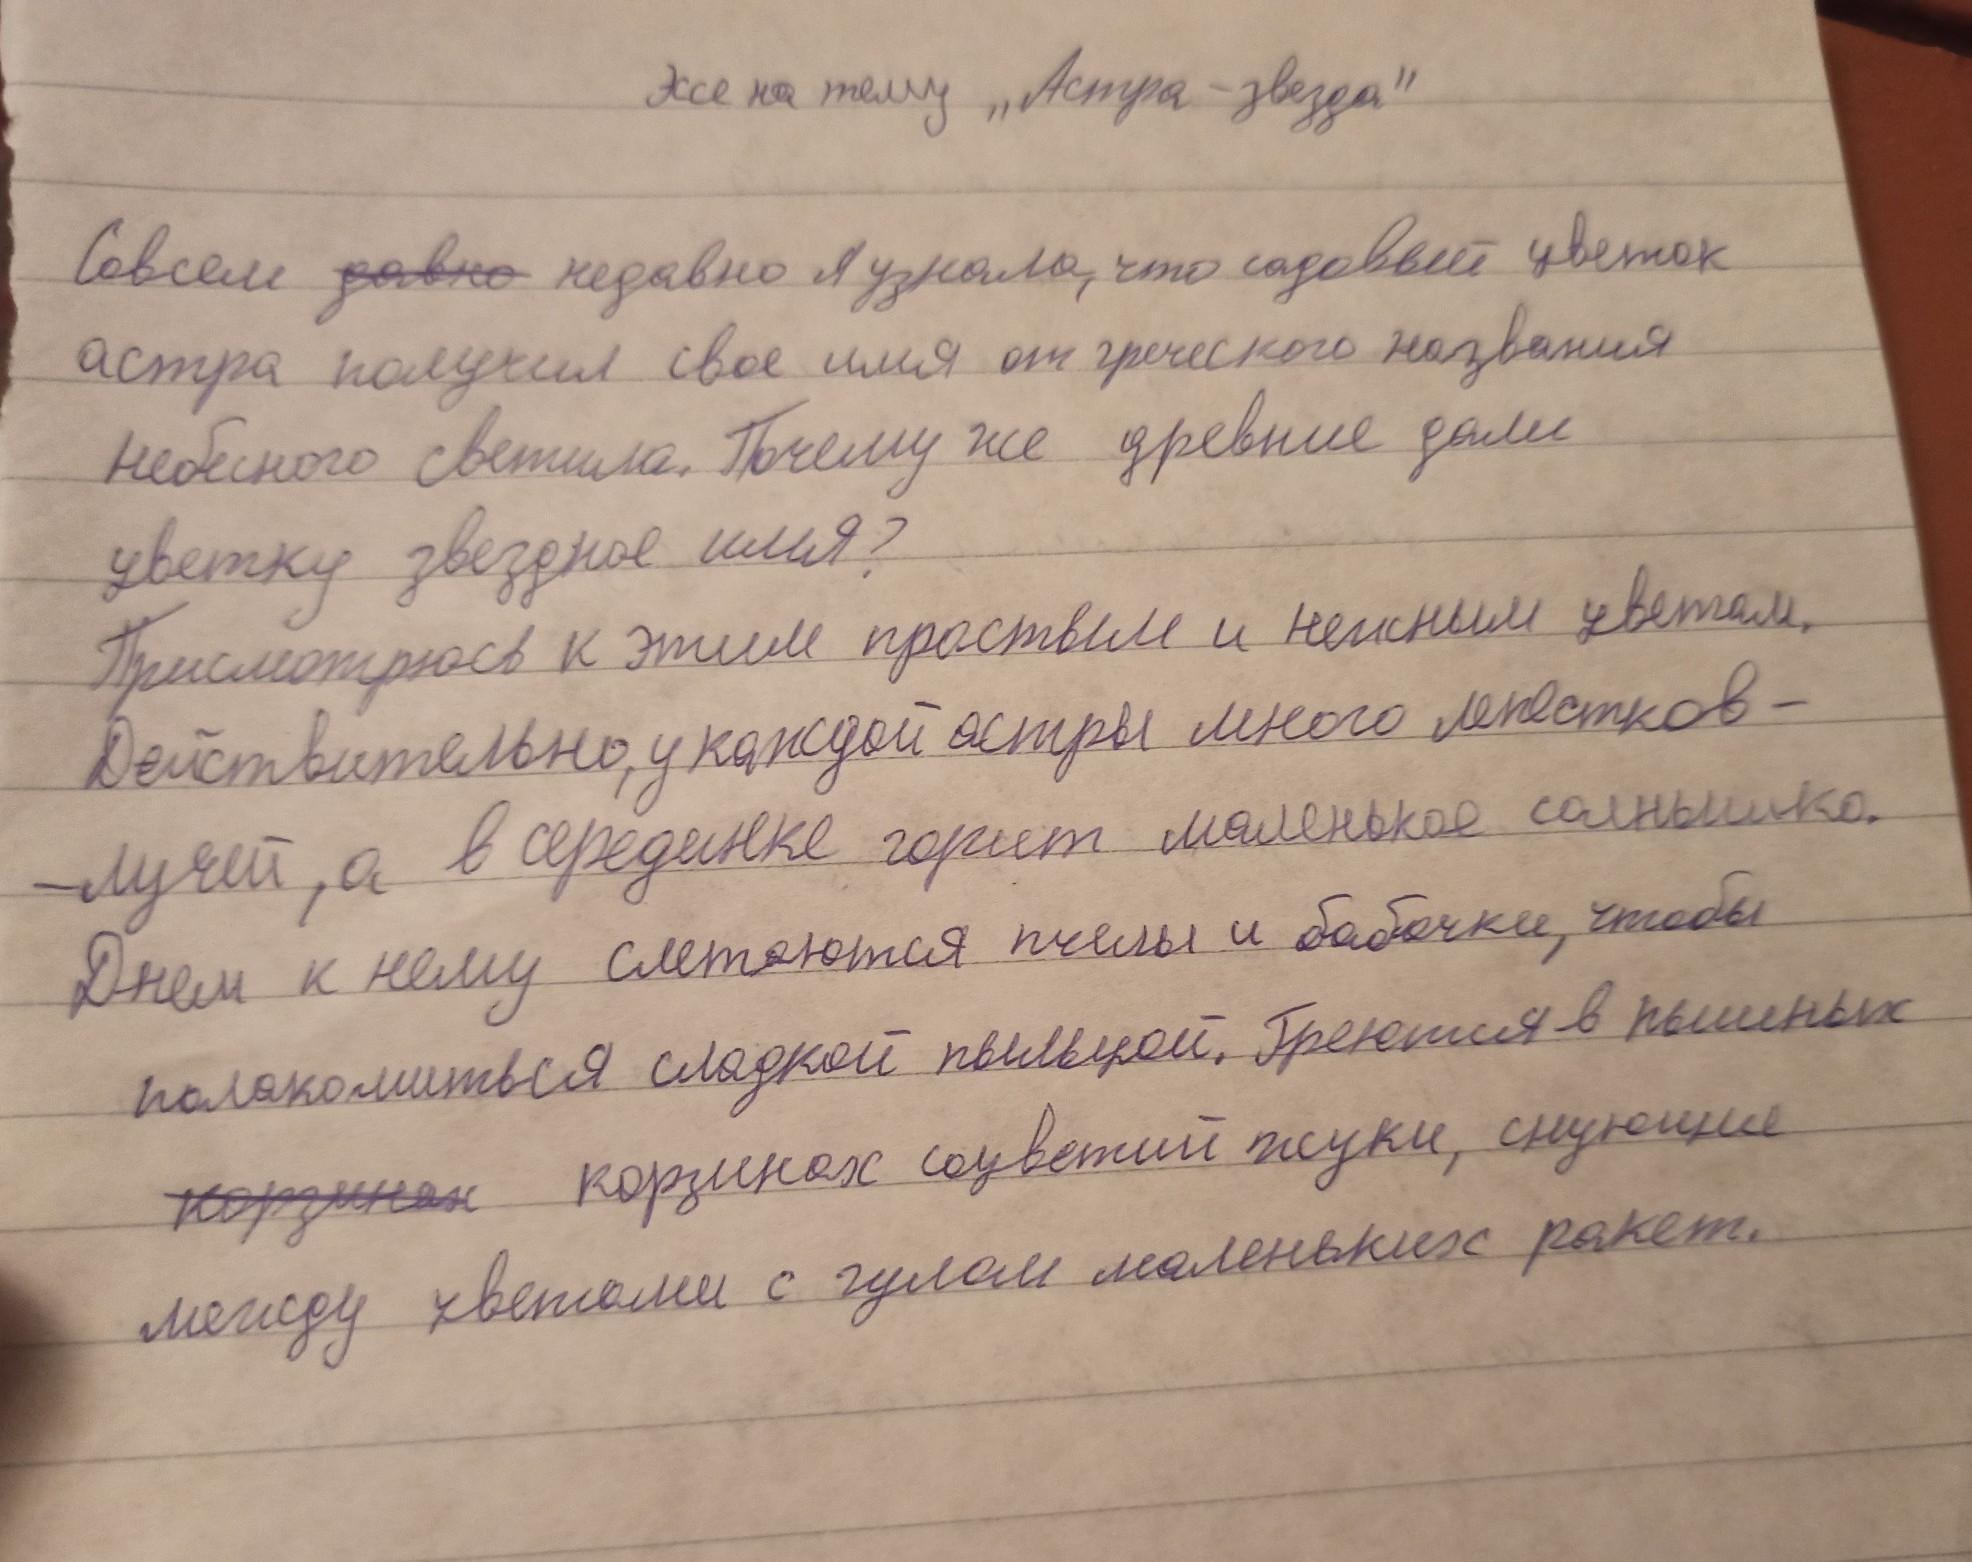 Эссе на тему „Астра-звезда"
Совсем давно недавно я узнала, что садовый цветок
астра получил свое имя от греческого названия
небесного светила. Почему же древние дали
цветку звездное имя?
Присмотрюсь к этим простым и нежным цветам.
Действительно, у каждой астры много лепестков -
- лучей, а в серединке горит маленькое солнышко.
Днем к нему слетаются пчелы и бабочки, чтобы
полакомиться сладкой пыльцой. Греются в пышных
корзинах корзинах соцветий жуки, снующие
между цветами с гулом маленьких ракет.